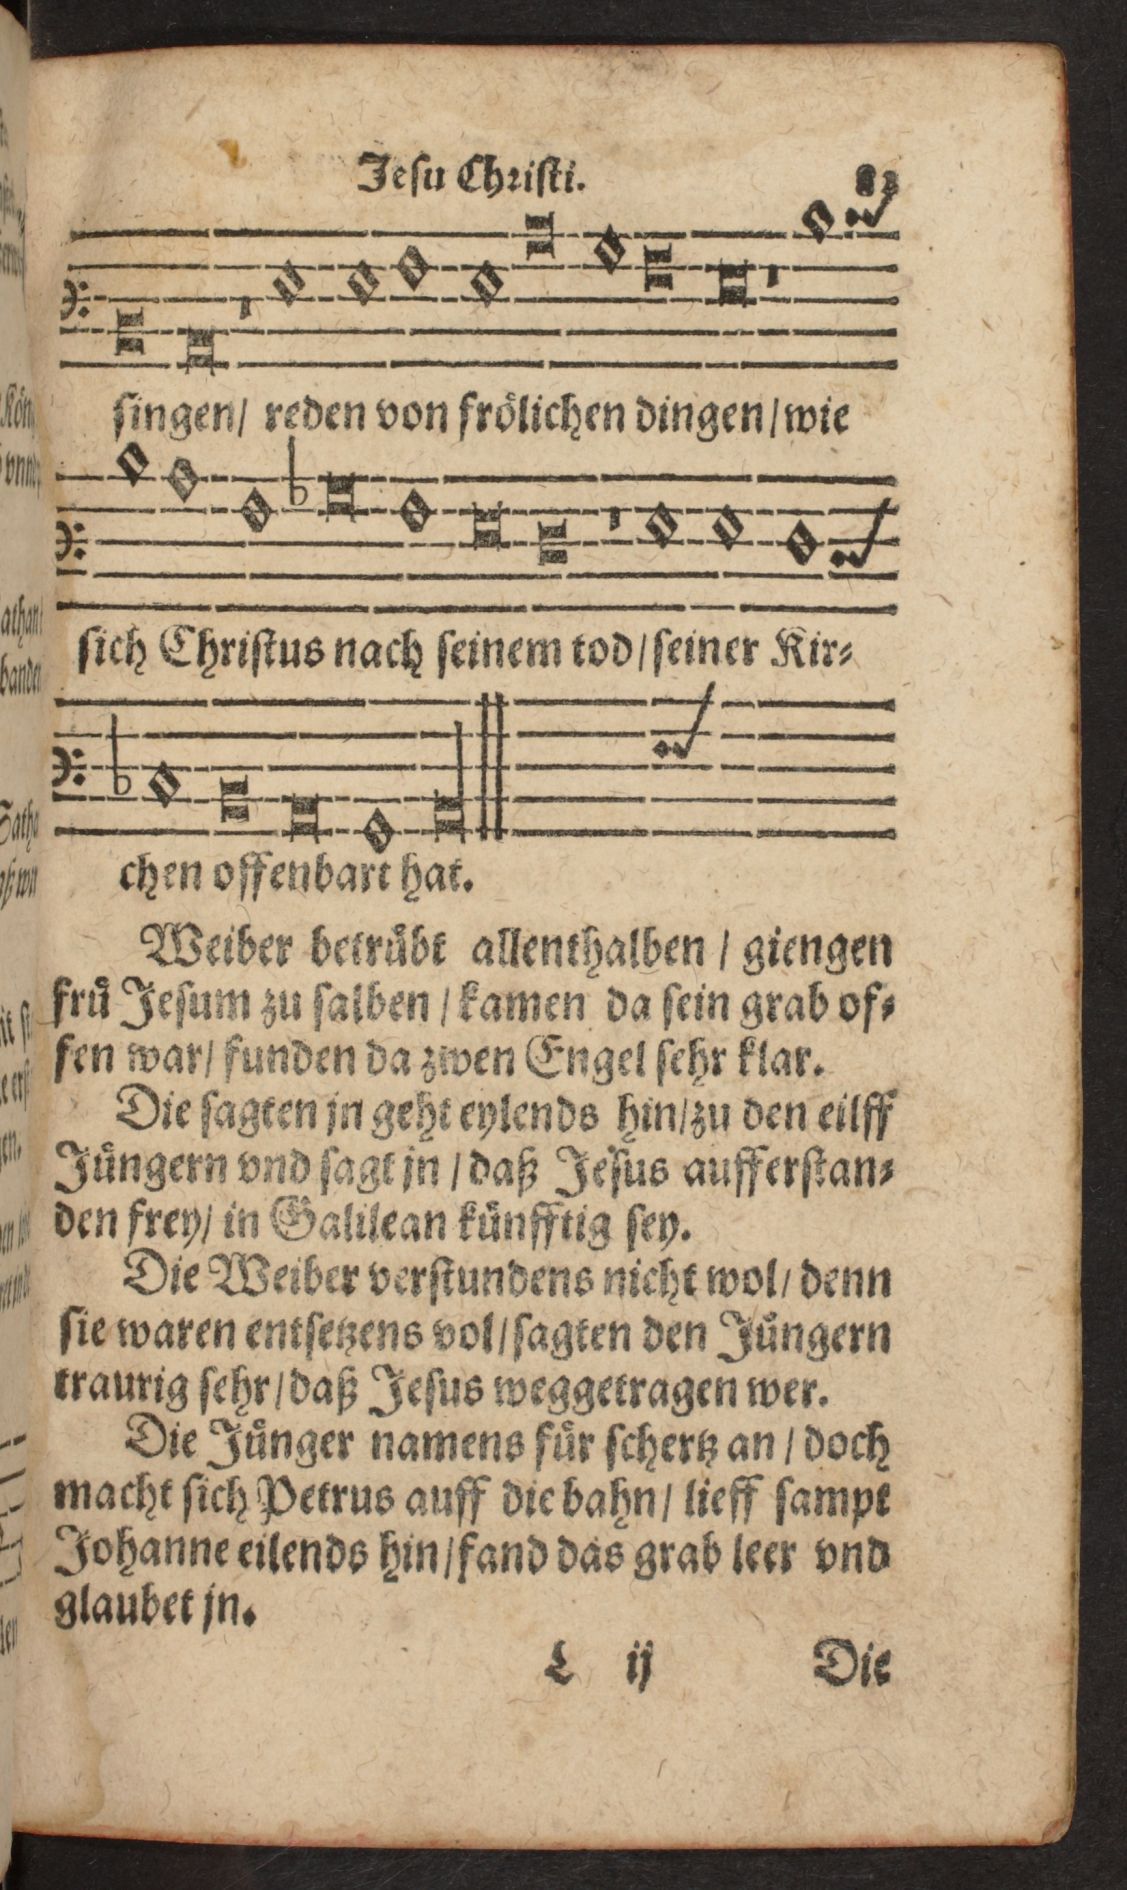 Jesu Christi. 83
singen/ reden von frölichen dingen/ wie
sich Christus nach seinem tod/ seiner Kir⸗
chen offenbart hat.
Weiber betruͤbt allenthalben / giengen
fruͤ Jesum zu salben / kamen da sein grab of⸗
fen war/ funden da zwen Engel sehr klar.
Die sagten jn geht eylends hin/ zu den eilff
Juͤngern vnd sagt jn / daß Jesus aufferstan⸗
den frey/ in Galilean kuͤnfftig sey.
Die Weiber verstundens nicht wol/ denn
sie waren entsetzens vol/ sagten den Juͤngern
traurig sehr/ daß Jesus weggetragen wer.
Die Juͤnger namens fuͤr schertz an / doch
macht sich Petrus auff die bahn/ lieff sampt
Johanne eilends hin/ fand das grab leer vnd
glaubet jn.
L ij Die